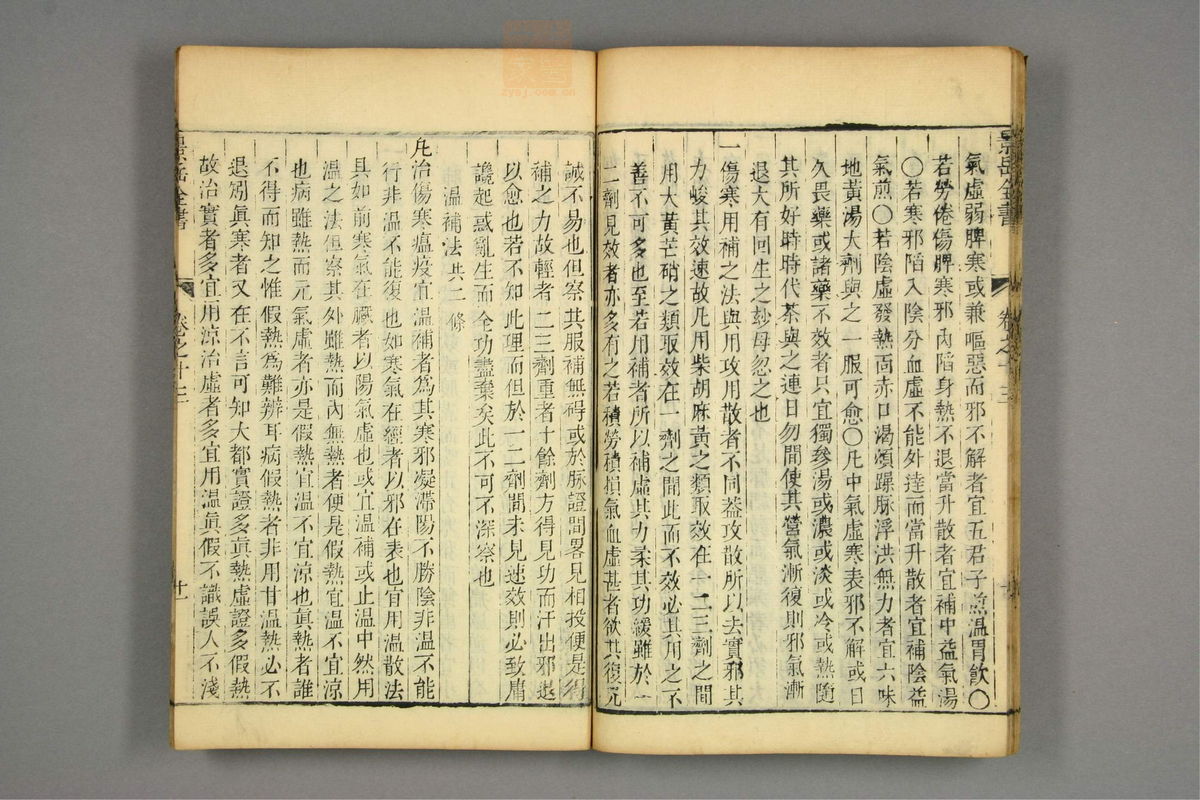 景岳全書
卷之十三
氣虛弱脾寒或兼嘔惡而邪不解者宜五君子煎溫胃飲〇
若勞倦傷脾寒邪內陷身熱不退當升散者宜補中益氣湯
〇若寒邪陷入陰分血虛不能外達而當升散者宜補陰益
氣煎〇若陰虛發熱面赤口渴煩躁脉浮洪無力者宜六味
地黃湯大劑與之一服可愈〇凡中氣虛寒表邪不解或日
久畏藥或諸藥不效者只宜獨參湯或濃或淡或冷或熱隨
其所好時時代茶與之連日勿間使其營氣漸復則邪氣漸
退大有回生之玅母忽之也
一傷寒用補之法與用攻用散者不同葢攻散所以去實邪其
力峻其效速故凡用柴胡麻黃之類取效在一二三劑之間
用大黃芒硝之類取效在一劑之間此而不效必其用之不
善不可多也至若用補者所以補虛其力柔其功緩雖於一
二劑見效者亦多有之若積勞積損氣血虛甚者欲其復元
誠不易也但察其服補無碍或於脉證間畧見相投便是得
補之力故輕者二三劑重者十餘劑方得見功而汗出邪退
以愈也若不知此理而但於一二劑間未見速效則必致庸
讒起惑亂生而全功盡棄矣此不可不深察也
溫補法共二條
凡治傷寒瘟疫宜溫補者爲其寒邪凝滯陽不勝陰非溫不能
行非溫不能復也如寒氣在經者以邪在表也宜用溫散法
具如前寒氣在臟者以陽氣虛也或宜溫補或止溫中然用
溫之法但察其外雖熱而內無熱者便是假熱宜溫不宜涼
也病雖熱而元氣虛者亦是假熱宜溫不宜涼也眞熱者誰
不得而知之惟假熱爲難辨耳病假熱者非用甘溫熱必不
退矧眞寒者又在不言可知大都實證多眞熱虛證多假熱
故治實者多宜用涼治虛者多宜用溫眞假不識誤人不淺
景岳全書
卷之十三
十一
zysj.com.cn